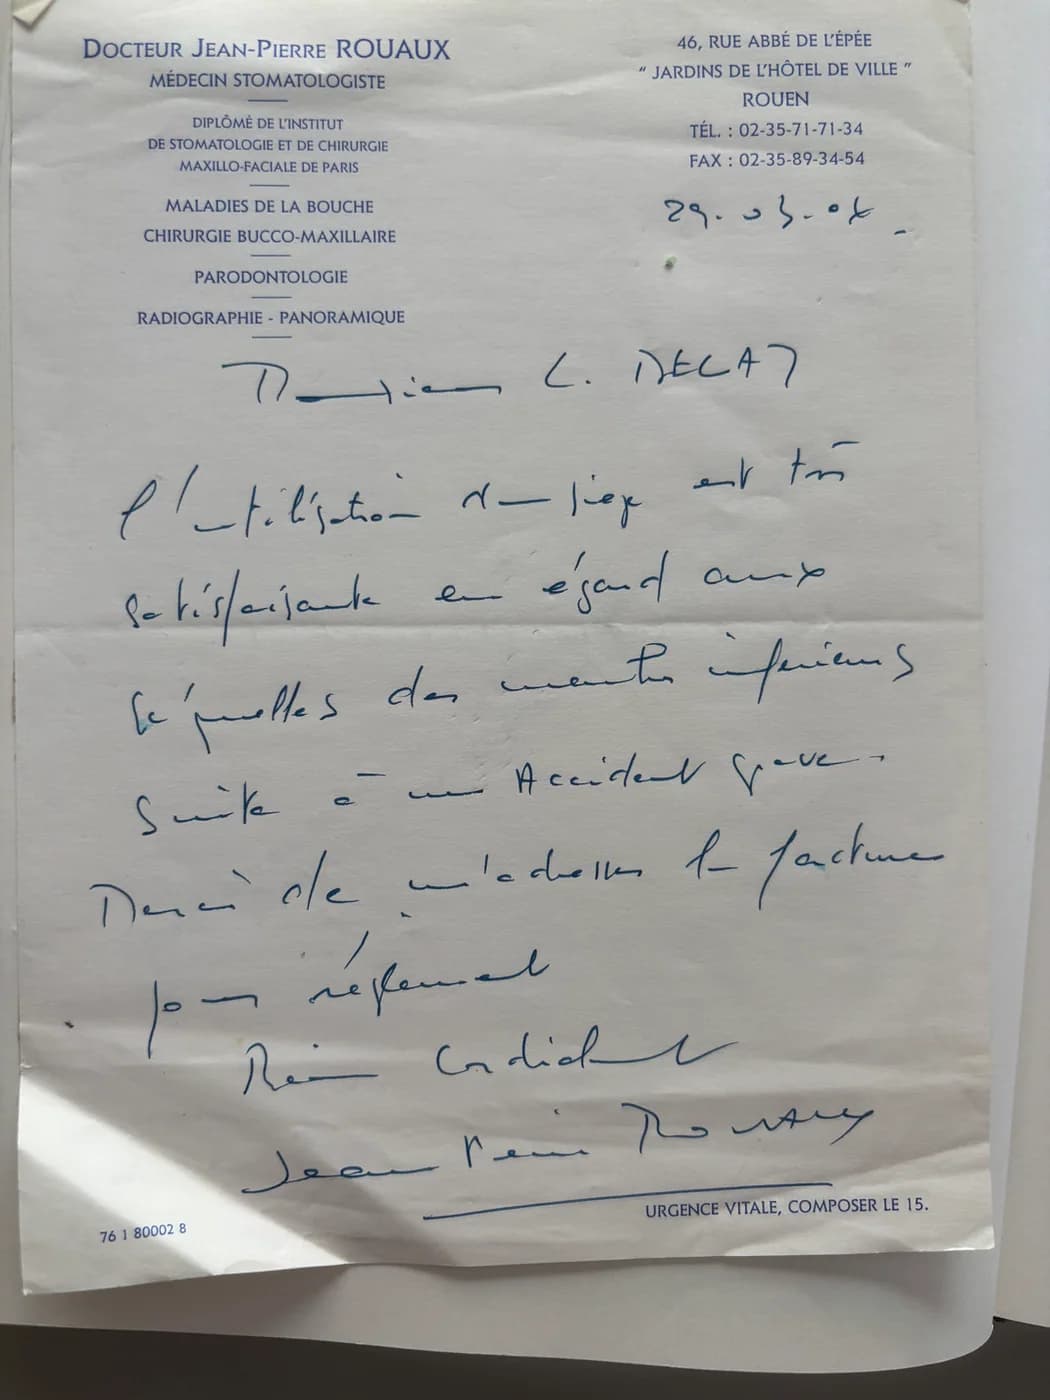 DOCTEUR JEAN-PIERRE ROUAUX
MÉDECIN STOMATOLOGISTE
DIPLÔMÉ DE L'INSTITUT
DE STOMATOLOGIE ET DE CHIRURGIE
MAXILLO-FACIALE DE PARIS
MALADIES DE LA BOUCHE
CHIRURGIE BUCCO-MAXILLAIRE
PARODONTOLOGIE
RADIOGRAPHIE - PANORAMIQUE
46, RUE ABBÉ DE L'ÉPÉE
" JARDINS DE L'HÔTEL DE VILLE "
ROUEN
TÉL. : 02-35-71-71-34
FAX : 02-35-89-34-54
29.03.04
Monsieur C. DECAT
l'utilisation du siege est très
satisfaisante en égard aux
séquelles des membres inférieurs
suite à un Accident grave.
Merci de m'adresser la facture
pour réglement
Bien Cordialement
Jean Pierre ROUAUX
76 1 80002 8
URGENCE VITALE, COMPOSER LE 15.